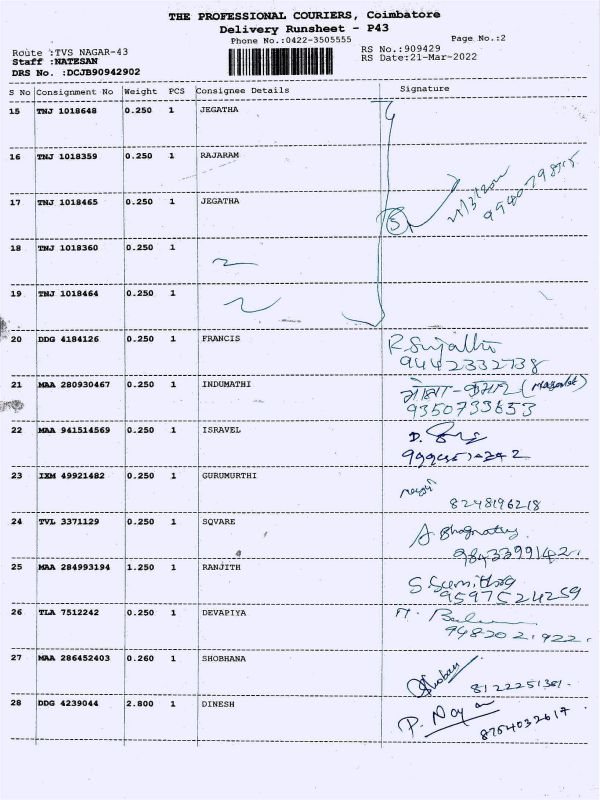 THE PROFESSIONAL COURIERS, Coimbatore
Delivery Runsheet - P43
Phone No.:0422-3505555
Page No.:2
Route :TVS NAGAR-43
RS No.:909429
Staff :NATESAN
RS Date:21-Mar-2022
DRS No. :DCJB90942902
S No Consignment No Weight PCS Consignee Details Signature
15 TNJ 1018648 0.250 1 JEGATHA
16 TNJ 1018359 0.250 1 RAJARAM
17 TNJ 1018465 0.250 1 JEGATHA
5
18 TNJ 1018360 0.250 1
19 TNJ 1018464 0.250 1
20 DDG 4184126 0.250 1 FRANCIS
R Sujatha
9442332738
21 MAA 280930467 0.250 1 INDUMATHI
9350733653
22 MAA 941514569 0.250 1 ISRAVEL
23 IXM 49921482 0.250 1 GURUMURTHI
8248196218
24 TVL 3371129 0.250 1 SQVARE
9843399142.
25 MAA 284993194 1.250 1 RANJITH
S Sumithra
9597524259
26 TLA 7512242 0.250 1 DEVAPIYA
27 MAA 286452403 0.260 1 SHOBHANA
28 DDG 4239044 2.800 1 DINESH
8754032617